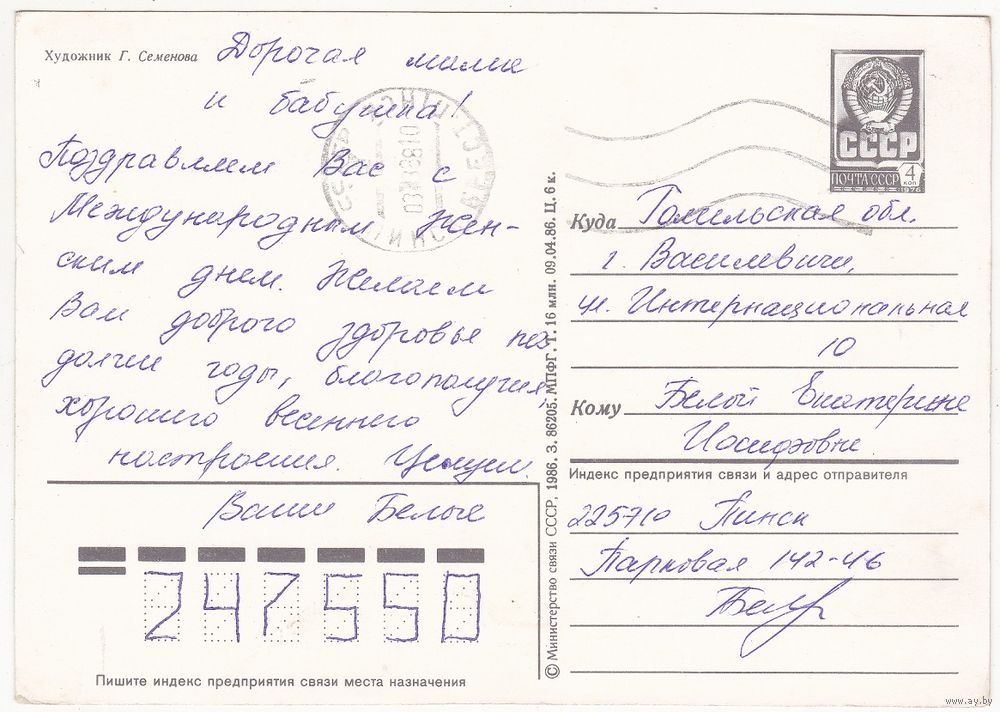 Художник Г. Семенова
Дорогая милие
и бабушка!
Поздравляем Вас с
Международным Жен-
ским днем. Желаем
Вам доброго здоровье на
долгие годы, благополучия,
хорошего весеннего
настроения. Целуем.
Ваши Белые
247550
Пишите индекс предприятия связи места назначения
© Министерство связи СССР, 1986. З. 86205. МПФГ. Т. 16 млн. 09.04.86. Ц. 6 к.
СССР
ПОЧТА СССР 4 КОП
1976
Куда Гомельская обл.
г. Василевичи,
ул. Интернациональная
10
Кому Белой Екатерине
Иосифовне
Индекс предприятия связи и адрес отправителя
225710 Пинск
Парковая 142-46
www.ay.by